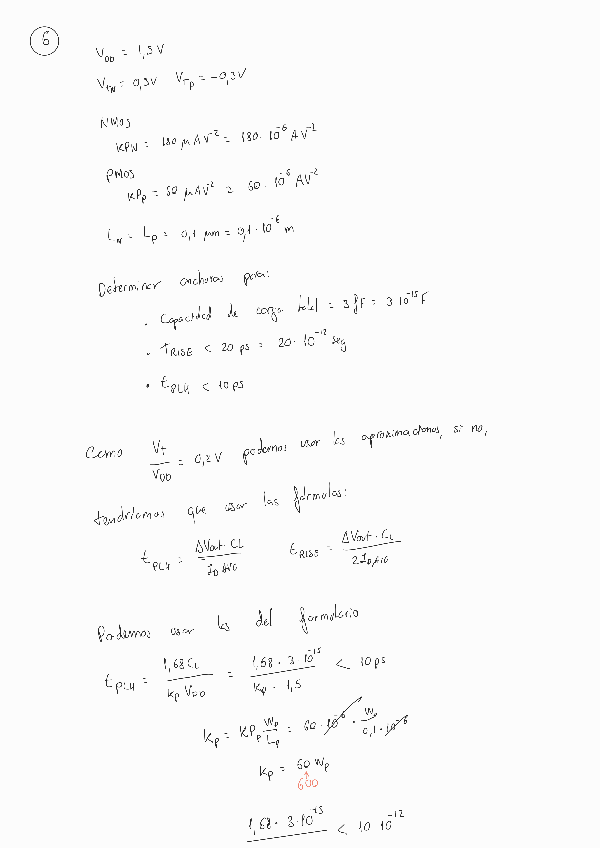 6
V_DD = 1,5 V
V_tN = 0,3V V_Tp = -0,3V
NMOS
KPN = 180 μAV^-2 = 180·10^-6 AV^-2
PMOS
KPp = 60 μAV^-2 = 60·10^-6 AV^-2
L_N = L_p = 0,1 μm = 0,1·10^-6 m
Determinar anchuras para:
· Capacidad de carga total = 3 fF = 3 10^-15 F
· t_RISE < 20 ps = 20·10^-12 seg
· t_PLH < 10 ps
Como V_t / V_DD = 0,2V podemos usar las aproximaciones, si no,
tendríamos que usar las fórmulas:
t_PLH = ΔVout·CL / I_D AVG t_RISE = ΔVout·CL / 2I_D,AVG
Podemos usar las del formulario
t_PLH = 1,68 CL / kp V_DD = 1,68·3 10^-15 / kp·1,5 < 10 ps
kp = KPp · Wp / Lp = 60·10^-6 · Wp / 0,1·10^-6
kp = 60 Wp
600
1,68·3·10^-15 < 10 10^-12